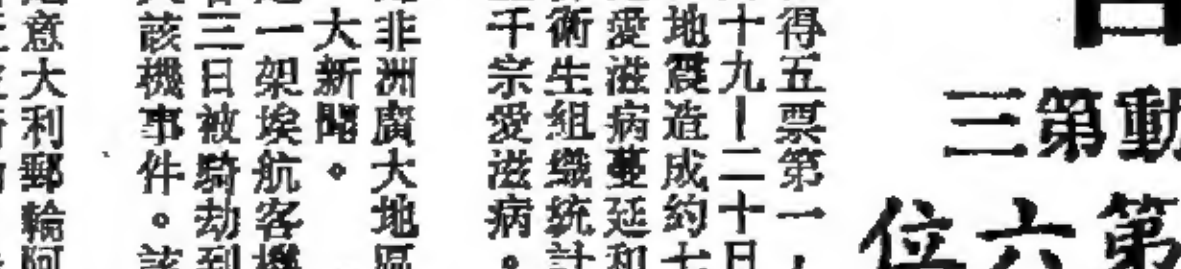 動第三
第六位
得五票第一，
十九－二十日
地震造成約七
愛滋病蔓延和
術生組織統計。
千宗愛滋病。
非洲廣大地區
大新聞。
一架埃航客機
三日被騎劫到
該機事件。該
意大利郵輪阿